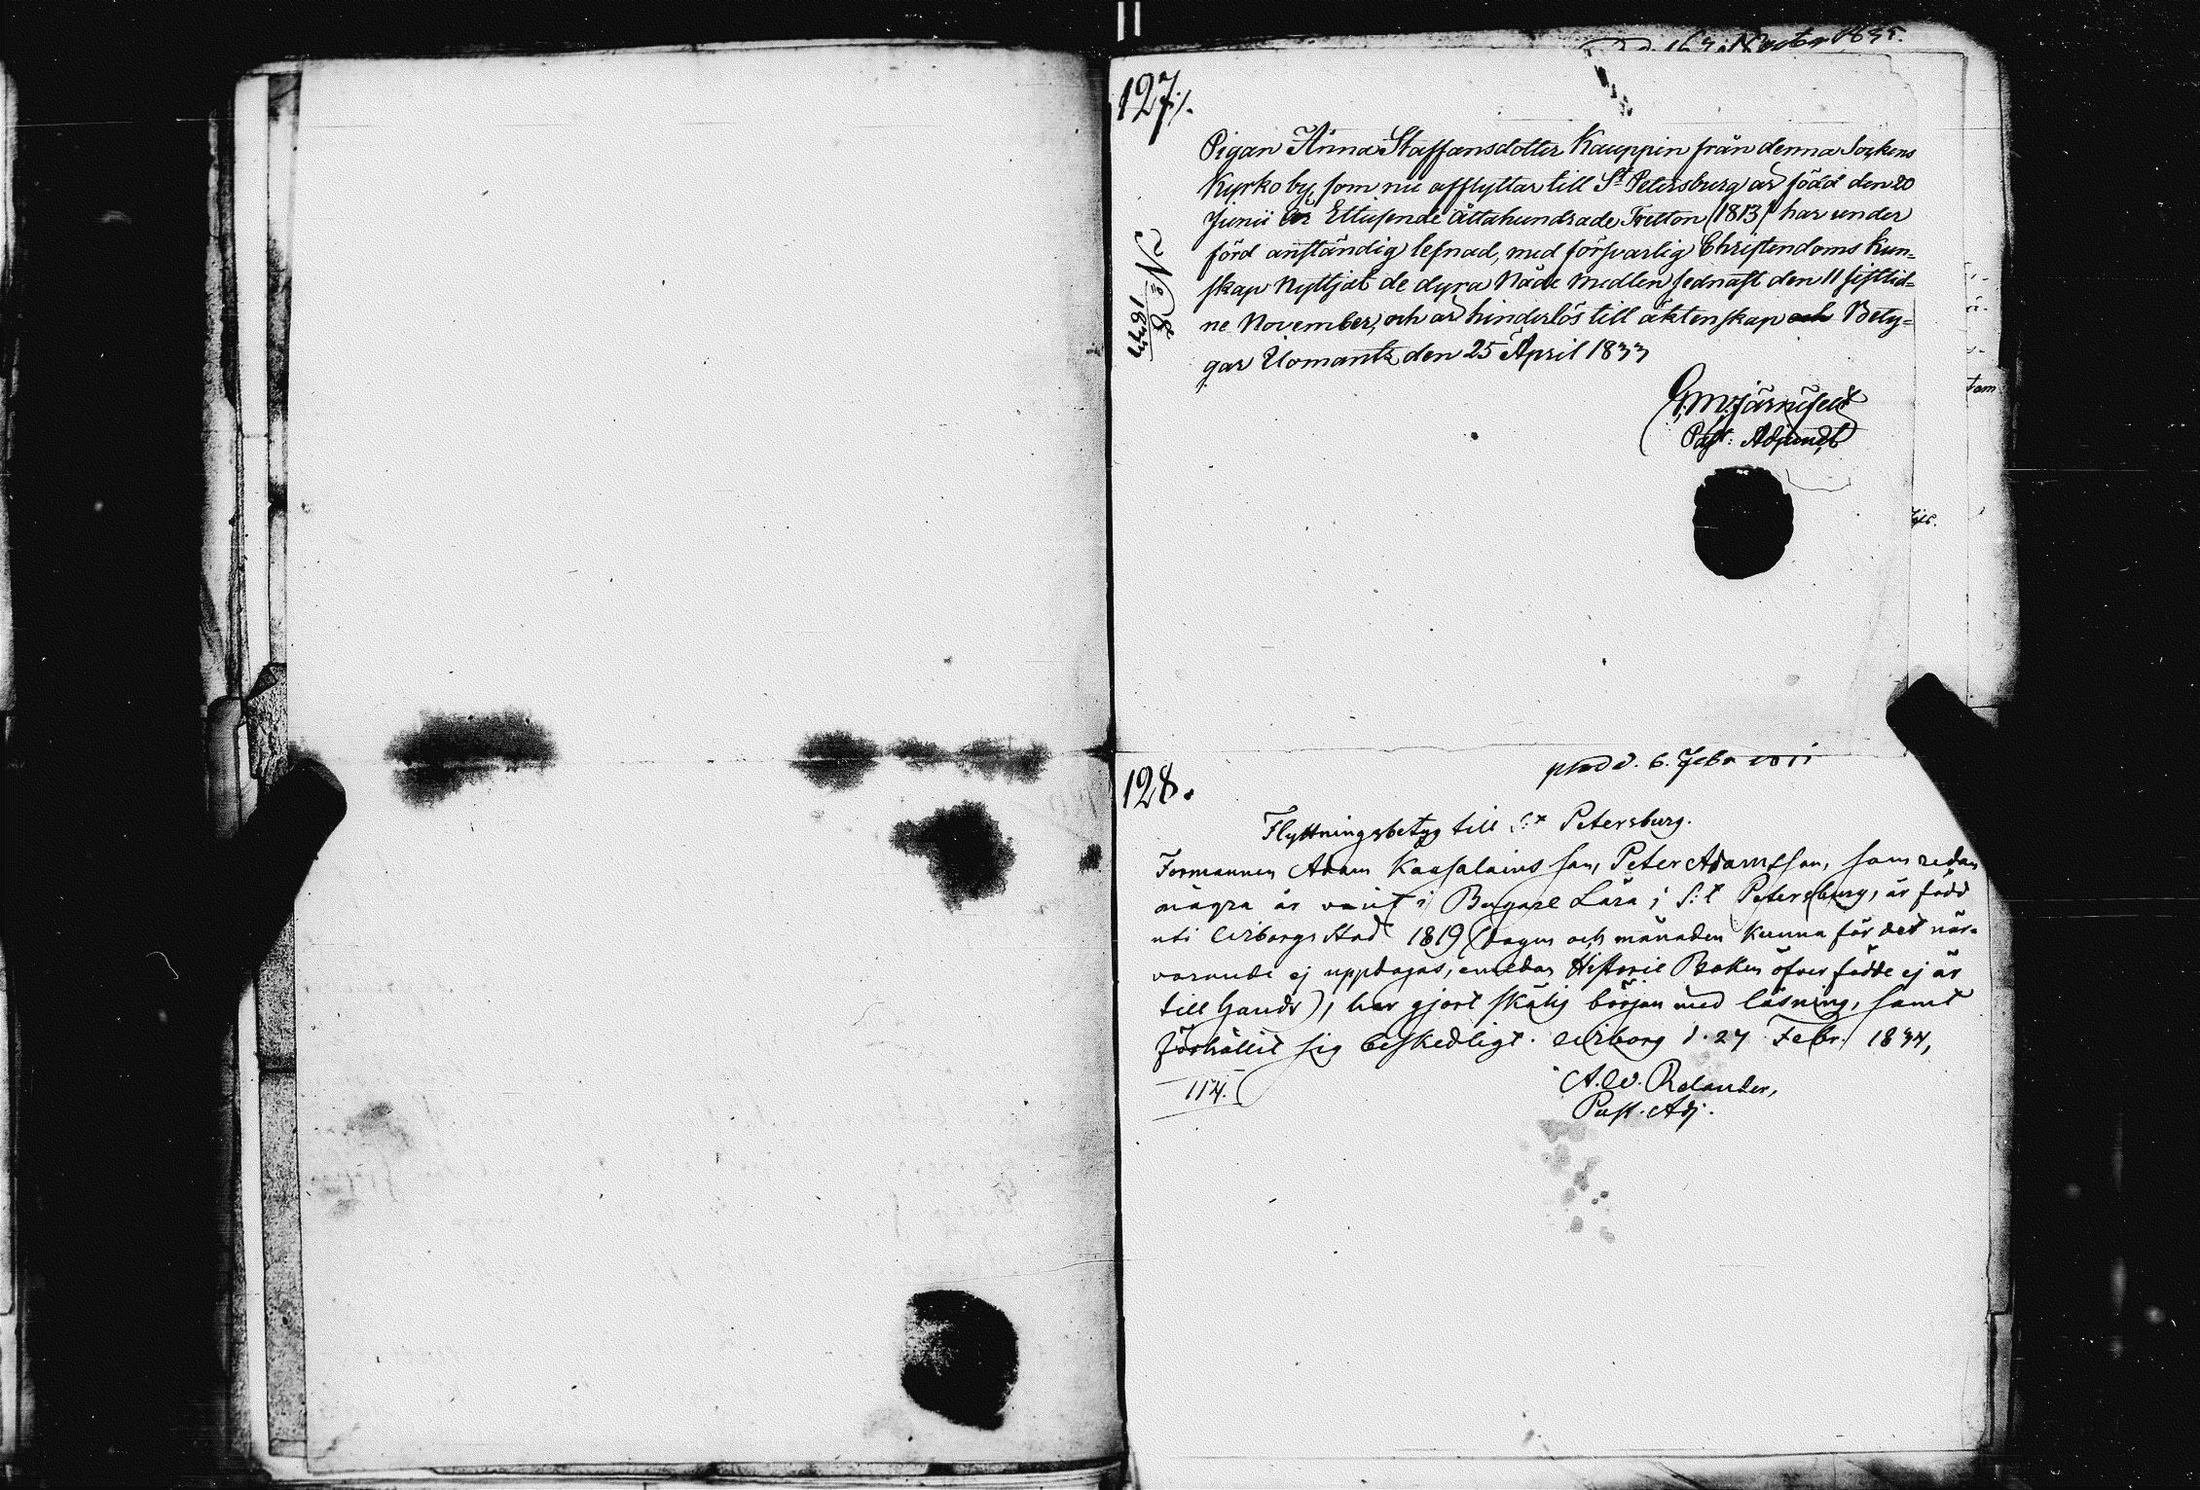 127./.
Pigan Anna Staffansdotter Kauppin från denna Sockens
Kyrkoby, som nu afflyttar till St Petersburg är född den 20
Junii År Ettusende Åttahundrade Tretton (1813) har under
förd anständig lefnad, med försvarlig Christendoms Kun-
skap Nyttjat de dyra Nåde Medlen sednast den 11 sistlid-
ne November, och är hinderlös till äktenskap och Bety-
gar Ilomants den 25 April 1833
No 8
1833
G. M. Järnefelt
Past: Adjunct
d. 6. Febr
128.
Flyttningsbetyg till S:t Petersburg.
Formannen Adam Kaasalains son, Peter Adamsson, som redan
några år varit i Bagare Lära i S:t Petersburg, är född
uti Wiborgs Stad 1819 (dagen och månaden kunna för det när-
varande ej uppdagas, emedan Historie Boken öfver födde ej är
till hands), har gjort skälig början med läsning, samt
förhållit sig beskedligt. Wiborg d. 27 Febr. 1834,
114.
A. W. Relander,
Past. Adj.